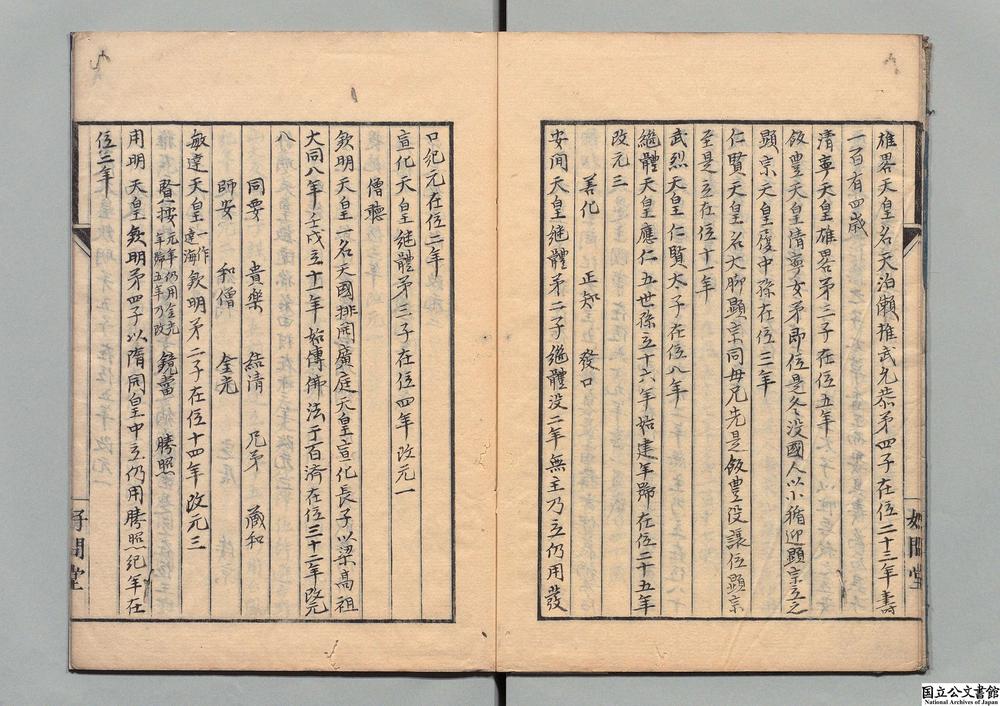 雄畧天皇名天泊瀬推武允恭第四子在位二十三年壽
一百有四歲
清寧天皇雄畧第三子在位五年
飯豊天皇清寧女弟即位是冬没國人以小循迎顯宗立之
顯宗天皇履中孫在位三年
仁賢天皇名大脚顯宗同毋兄先是飯豊没讓位顯宗
至是立在位十一年
武烈天皇仁賢太子在位八年
繼體天皇應仁五世孫立十六年始建年歸在位二十五年
改元三
善化 正知 發口
安閒天皇繼體第二子繼體没二年無主乃立仍用發
口紀元在位二年
宣化天皇繼體第三子在位四年改元一
僧聽
欽明天皇一名天國排開廣庭天皇宣化長子以梁高祖
大同八年壬戌立十一年始傳佛法于百濟在位三十二年改元
同要 貴樂 結清 兄弟 蔵和
師安 和僧 金光
敏達天皇一作達海欽明第二子在位十四年改元三
賢接元年仍用金光年號五年乃改 鏡當 勝照
用明天皇欽明第四子以隋開皇中立仍用勝照紀年在
位三年
好問堂
好問堂
国立公文書館
National Archives of Japan